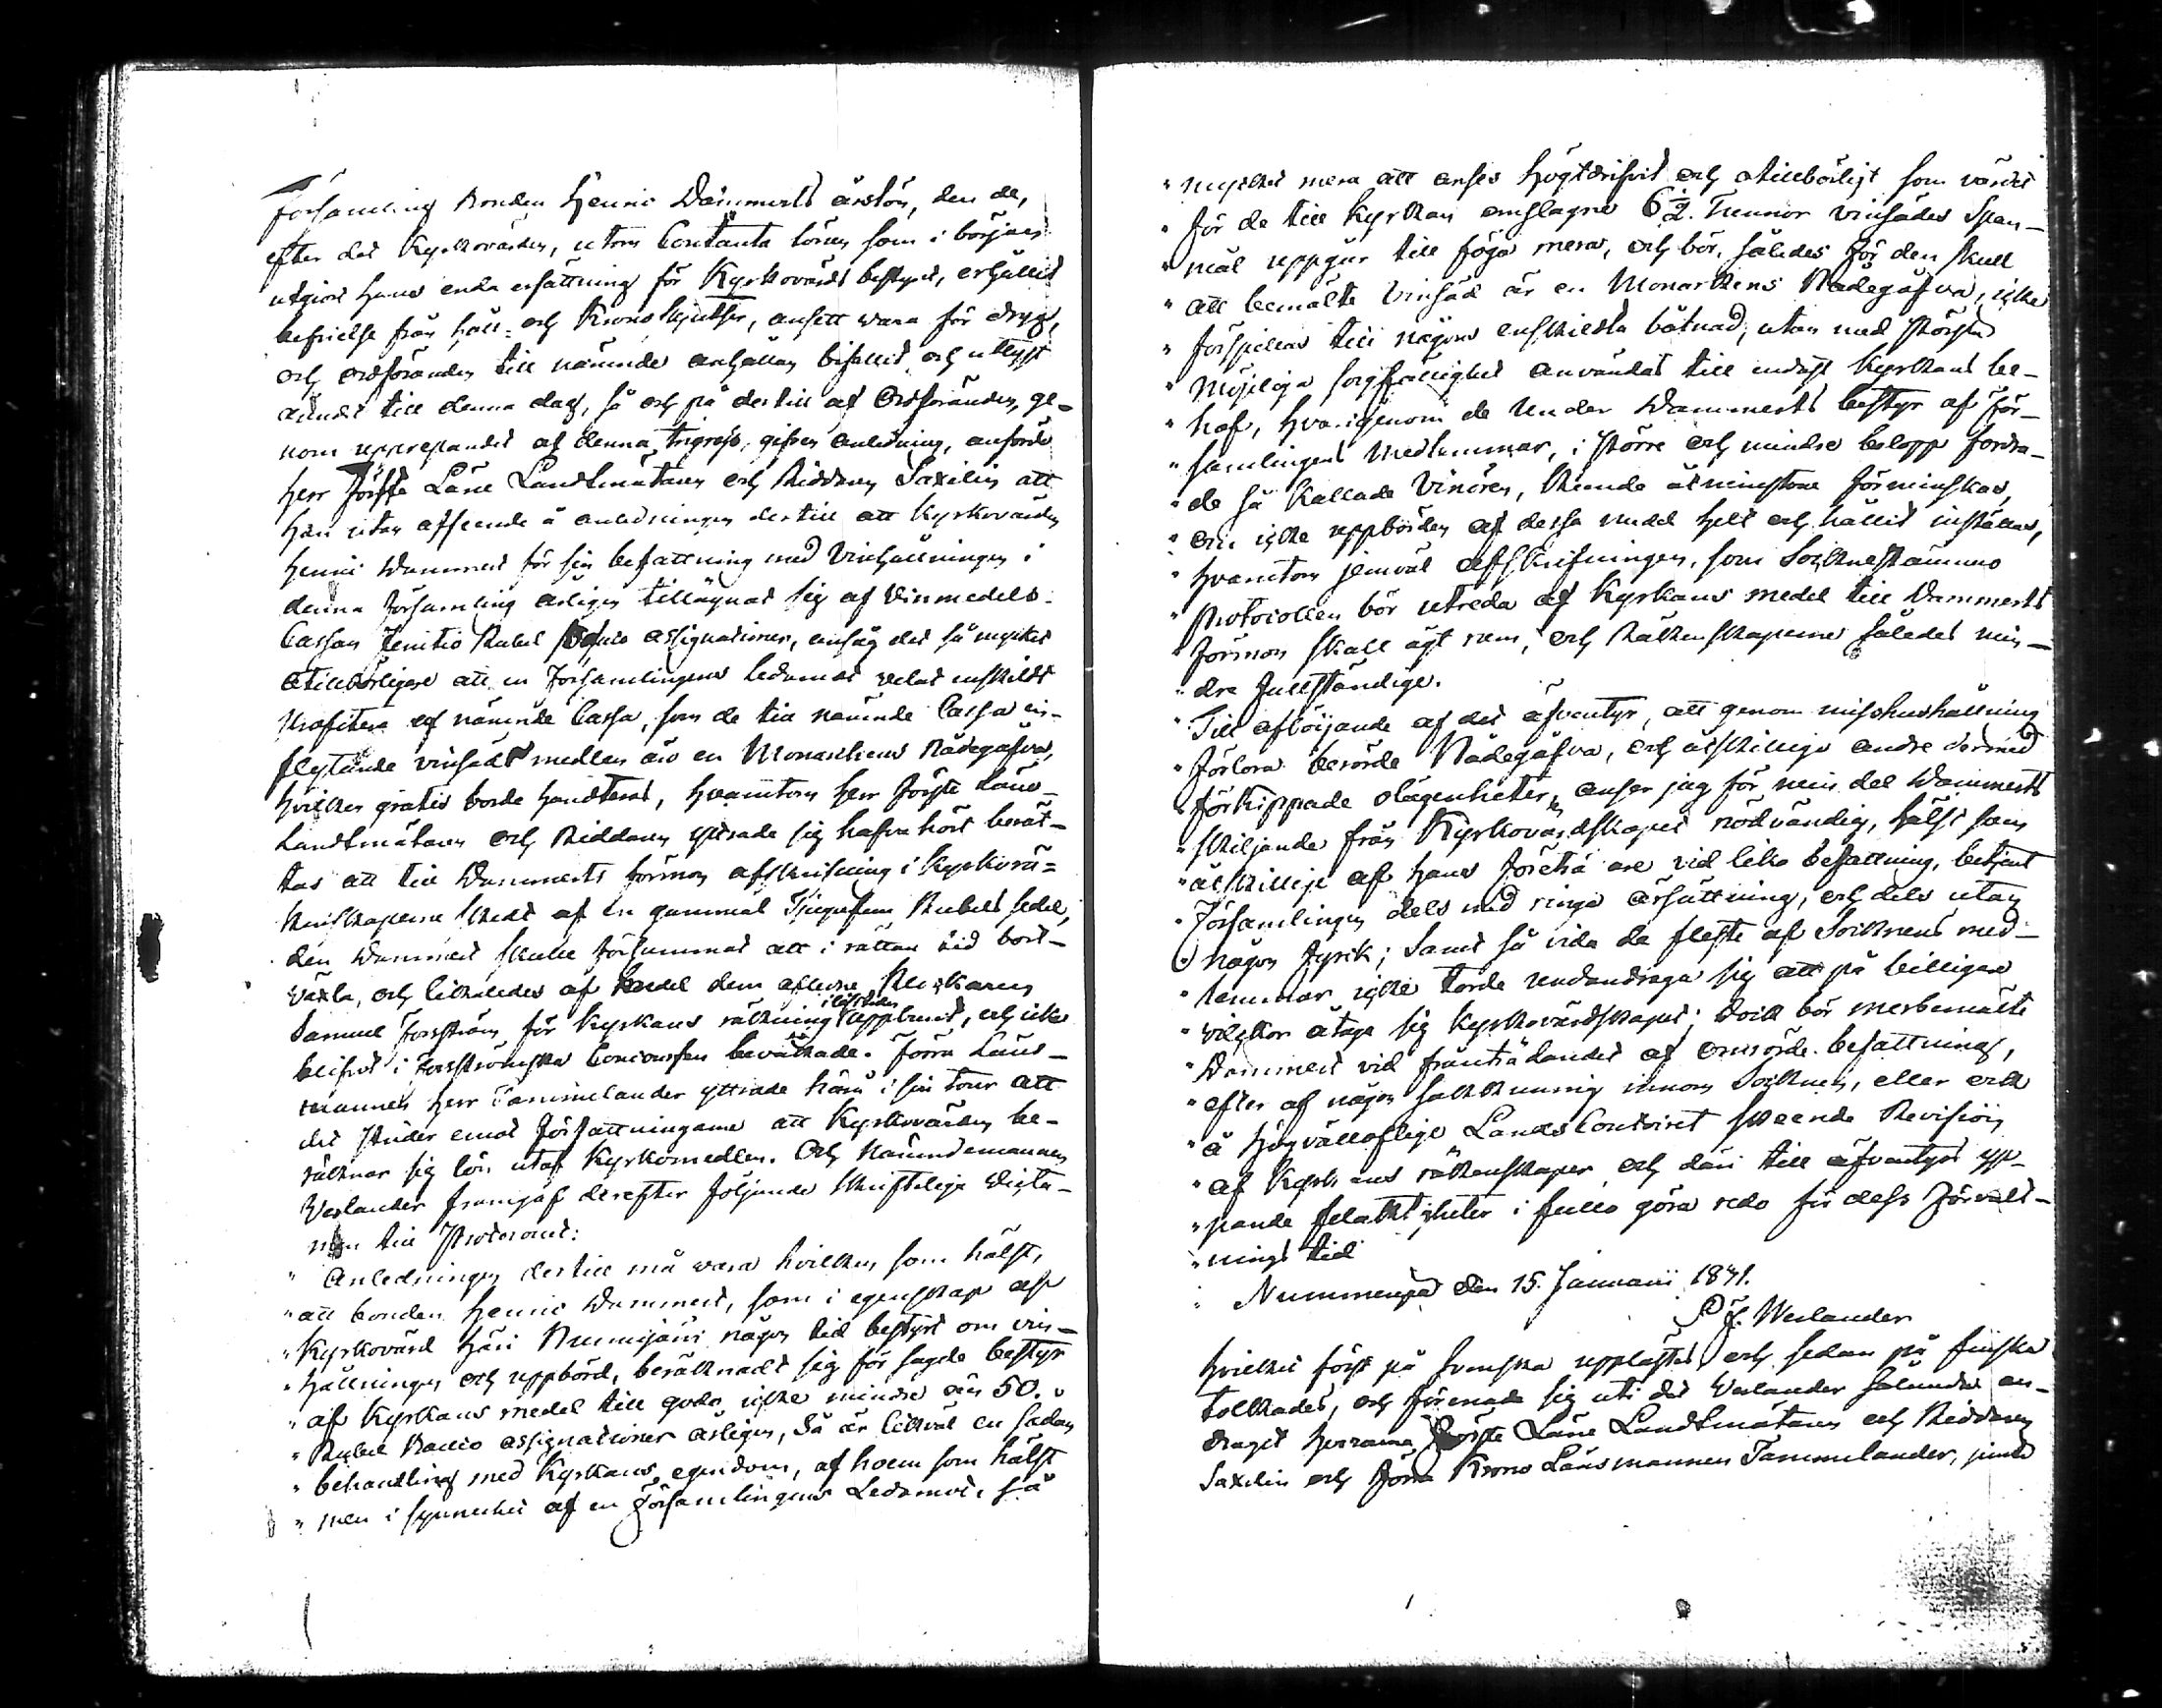 församling Bonden Henric Dammerts årslön, den de,
efter det Kyrkovärden, utom Contanta lönen som i början
utgjort hans enda ersättning för Kyrkovärds bestyret, erhållit
befrielse från håll- och Kronoskjutser, ansett vara för dryg,
och ordföranden till nämnde anhållan bifallit och utlyst
ämnet till denna dag, så och på dertill af Ordföranden, ge-
nom upprepandet af denna gifven anledning, anförde
Herr Förste Läne Landtmätaren och Riddaren Saxelin att
han utan afseende å anledningen dertill att Kyrkovärden
Henric Dammert för sin befattning med Vinhållningen i
denna församling årligen tillägnat sig af Vinmedels-
Cassan femtio Rubel assignationer, ansåg det så mycket
otillbörligare att en Församlingens Ledamot velat enskildt
profitera af nämnde Cassa, som de till nämnde Cassa in-
flytande vinsäds medlen äro en Monarkens Nådegåfva,
hvilken gratis borde handteras, hvarutom Herr Förste Läne-
Landtmätaren och Riddaren yttrade sig hafva hört berät-
tas att till Dammerts förmon afskrifning i Kyrkorä-
kenskaperne skedt af en gammal Tjugufem Rubels sedel,
den Dammert skulle försummat att i rättan tid bort-
växla, och likaledes af medel dem aflidne Klockaren
Samuel Forsström för Kyrkans räkning i lifstiden uppburit, och icke
blifvit i Forsströmska Concursen bevakade. Förra Läns-
mannen Herr Tammelander yttrade härå i sin tour att
det strider emot författningarne att Kyrkovärden be-
räknar sig lön utaf Kyrkomedlen. Och Nämndemannen
Weslander framgaf derefter följande skriftelige dicta-
men till Protocollet:
" Anledningen dertill må vara hvilken som hälst,
" att bonden Henric Dammert, som i egenskap af
" Kyrkovärd här i Nummijärvi någon tid bestyrt om vin-
" hållningen och uppbörd, beräknadt sig för sagde bestyr
" af Kyrkans medel till godo icke mindre än 50.
" Rubel Banco assignationer årligen, Så är likväl en sådan
" behandling med Kyrkans egendom, af hvem som hälst
" men i synnerhet af en Församlingens Ledamot, så
" mycket mera att anses högtdrifvit och otillbörligt som värdet
" för de till Kyrkan anslagne 6 1/2. Tunnor vinsädes Span-
" mål uppgår till föga mera, och bör, således för den skull
" att bemälte Vinsäd är en Monarkens Nådegåfva, icke
" förspillas till någons enskildta båtnad, utan med största
" möjliga sorgfällighet användas till endast Kyrkans be-
" hof, hvarigenom de under Dammerts bestyr af för-
" samlingens medlemmar, i större och mindre belopp fordra-
" de så kallade Vinören, kunde åtminstone förminskas,
" om icke uppbörden af dessa medel helt och hållit inställas,
" hvarutom jemväl afskrifningen, som Sockenstämmo
" Protocollen bör utreda af Kyrkans medel till Dammerts
" förmon skall ägt rum, och Räkenskaperne således min-
" dre fullständige.
" Till afböjande af det äfventyr, att genom misshushållning
" förlora berörde Nådegåfva, och åtskillige andre dermed
" förknippade olägenheter, anser jag för min del Dammerts
" skiljande från Kyrkovärdskapet nödvändig, hälst som
" åtskillige af hans företrädare vid lika befattning, betjent
" Församlingen dels med ringa ersättning, och dels utan
" någon dyrik; Samt så vida de fleste af Socknens med-
" lemmar icke torde undandraga sig att på billigare
" vilkor åtaga sig Kyrkovärdskapet; dock bör merbemälte
" Dammert vid frånträdandet af omrörde befattning,
" efter af någon sakkunnig innom Socknen, eller ock
" å Högvälloflige Lands Contoiret skeende Revision
" af Kyrkans räkenskaper och däri till äfventyrs yp-
" pande felaktigheter i fullo göra redo för dess förvalt-
" nings tid
" Nummenpä den 15. Januarii 1841.
J. Weslander
hvilket först på Svenska upplästes och sedan på finska
tolkades, och förenade sig uti det Weslander sålunda an-
dragit Herrarne Förste Läne Landtmätaren och Riddaren
Saxelin och förra Krono Länsmannen Tammelander, jemte